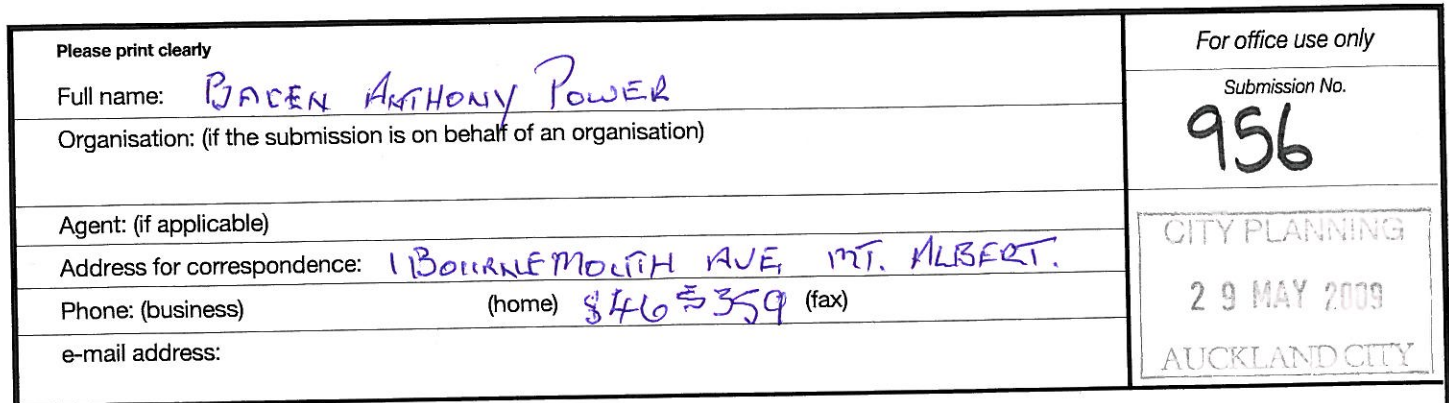 Please print clearly
Full name: ANTHONY POWER
Organisation: (if the submission is on behalf of an organisation)
Agent: (if applicable)
Address for correspondence: 1 BOURNEMOUTH AVE, MT. ALBERT.
Phone: (business) (home) (fax)
e-mail address:
For office use only
Submission No.
956
CITY PLANNING
29 MAY 2009
AUCKLAND CITY